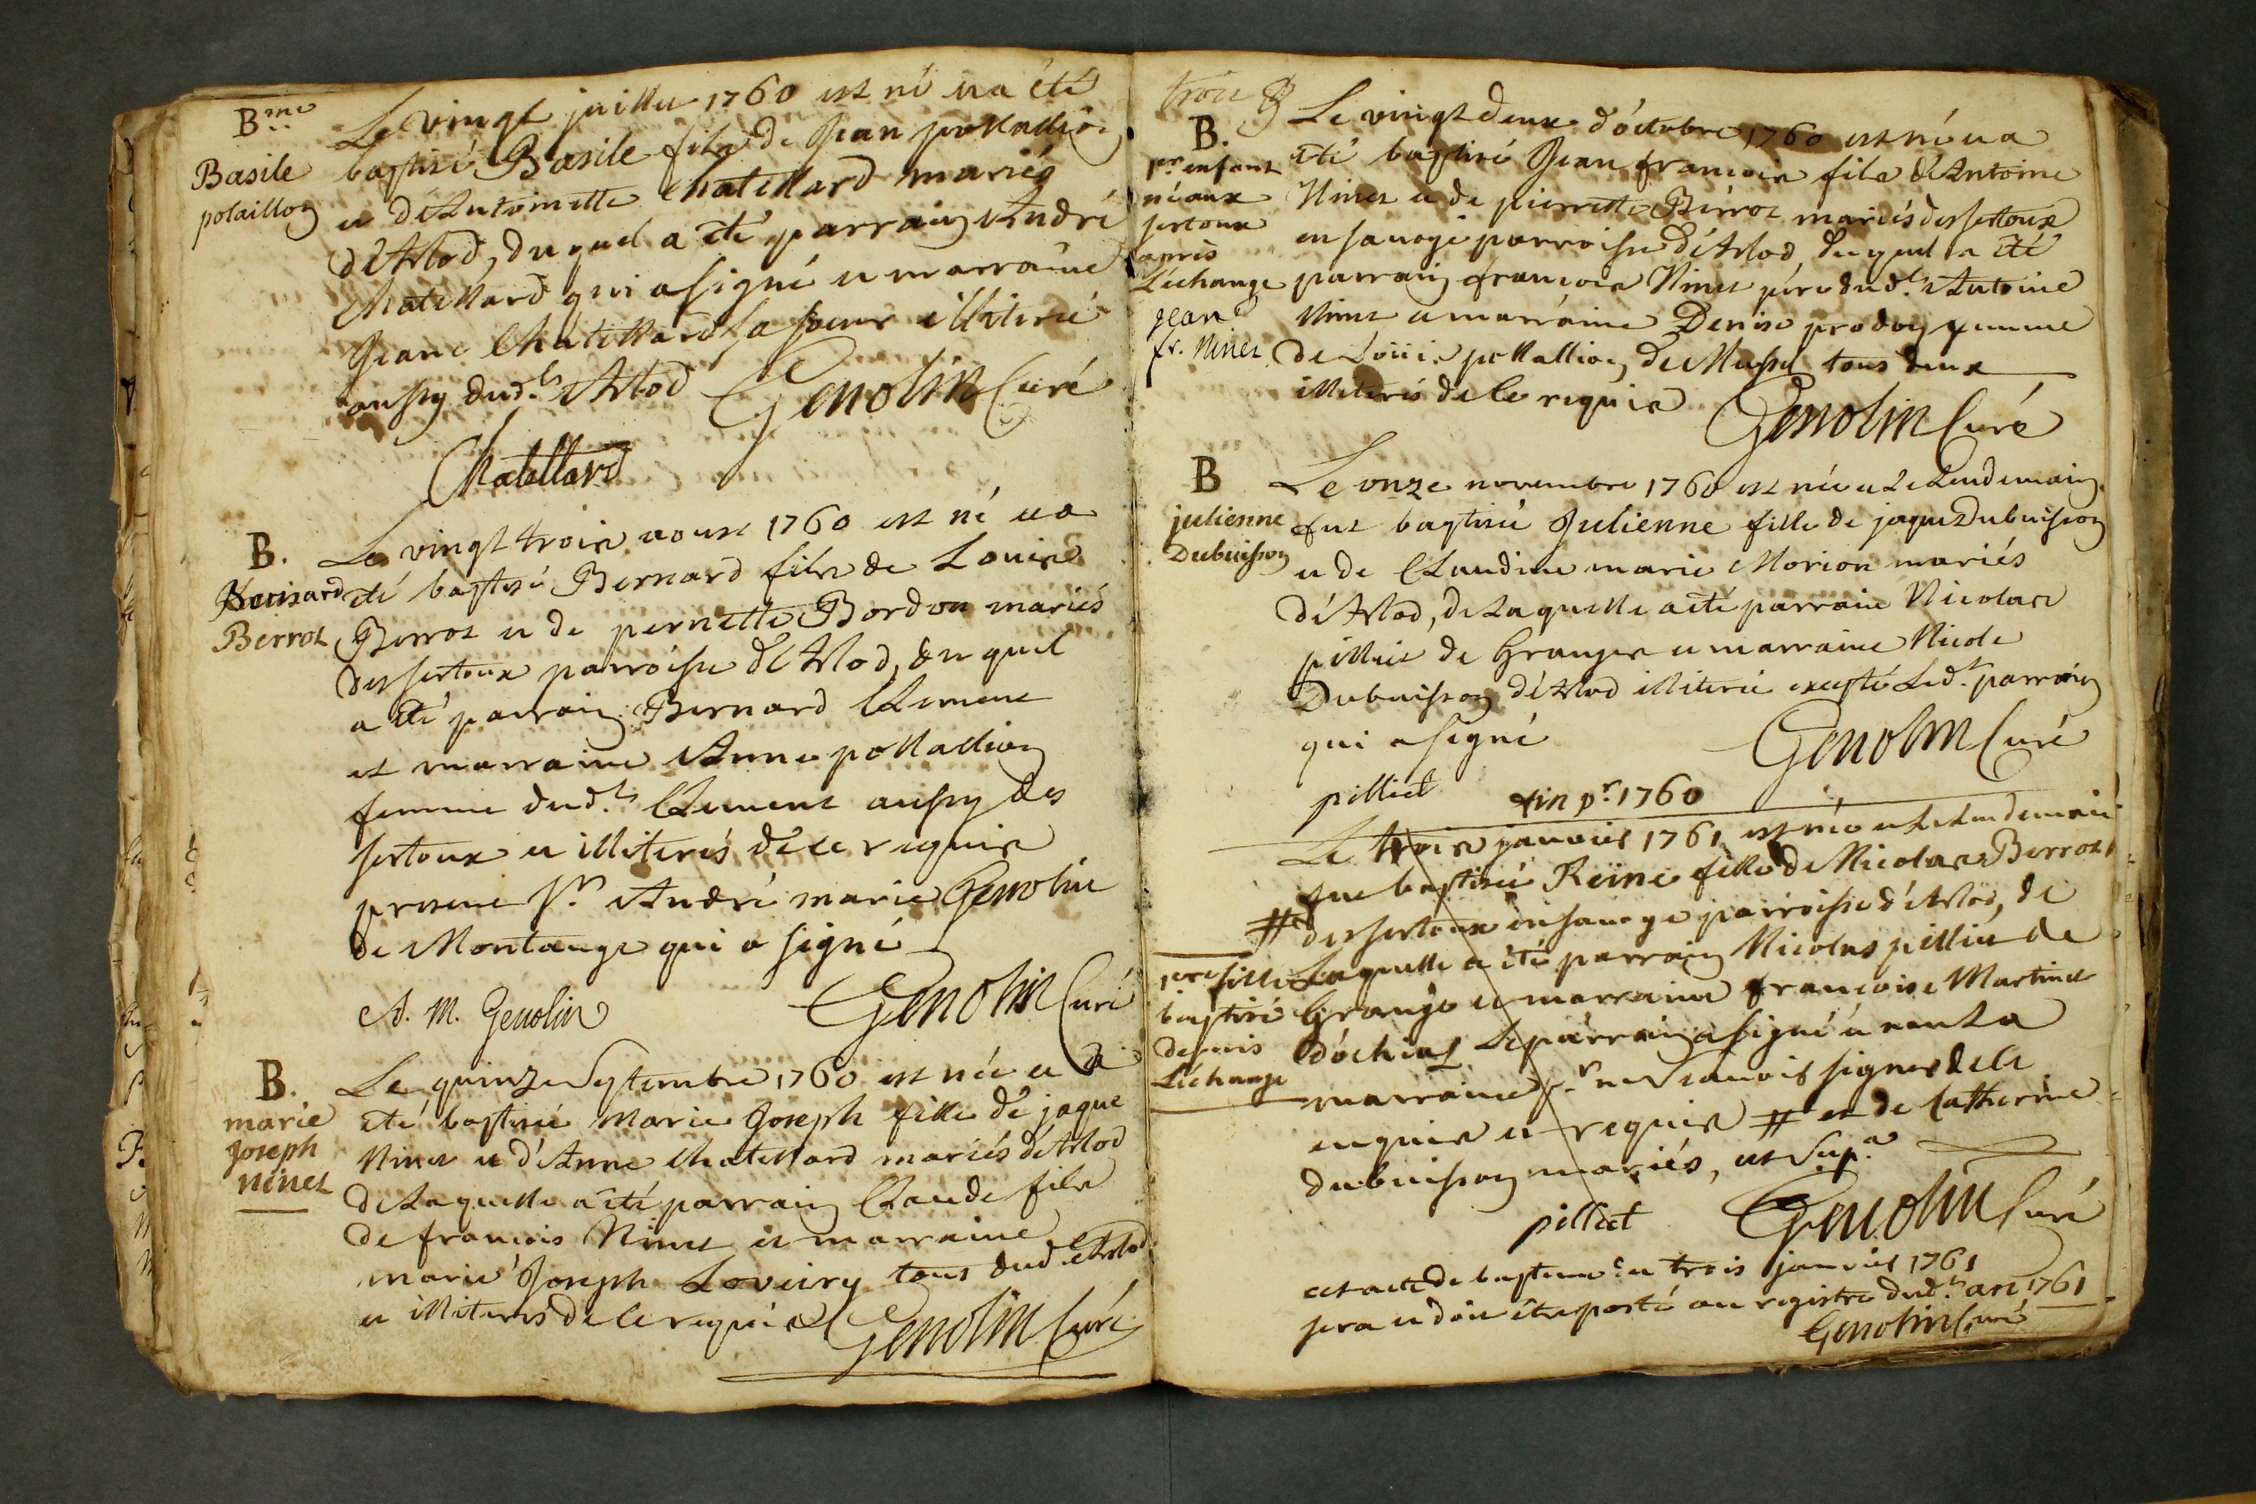 Bme
Basile
polaillon
Le vingt juillet 1760 est né et a été
baptisé Basile fils de Jean pollallion
et d'Antoinette Chatellard mariés
d'Arlod, duquel a été parrain André
Chatellard qui a signé et marraine
Jeane Chatellard sa soeur illiterée
aussy dud.t Arlod Genolin Curé
Chatellard
B.
Bernard
Berrot
Le vingt trois aoust 1760 est né et a
été baptisé Bernard fils de Louis
Berrot et de pernette Bordon mariés
des sertoux parroisse d'Arlod, duquel
a été parrain Bernard Clement
et marraine Anne pollallion
femme dud.t Clement aussy des
sertoux et illiterés de ce requis
present Sr. André marie Genolin
de Montange qui a signé
A. M. Genolin Genolin Curé
B.
marie
Joseph
ninet
Le quinze Septembre 1760 est née et a
été baptisée Marie Joseph fille de jaque
Ninet et d'Anne Chatellard mariés d'Arlod
de Laquelle a été parrain Claude fils
de francois Ninet et marraine
marie Joseph Loveiry tous dud. Arlod
et illiterés de ce requis Genolin Curé
trois
B.
pr. enfant
né aux
sertoux
apres
L'echange
Jean
fr. Ninet
Le vingt deux d'octobre 1760 est né et a
été baptisé Jean francois fils d'Antoine
Ninet et de pierrette Berrot mariés des sertoux
en sauoge parroisse d'Arlod, duquel a été
parrain francois Ninet père dud.t Antoine
Ninet et marraine Denise prodon femme
de Loüis pollallion de Mussel tous deux
illiterés de ce requis Genolin Curé
B
julienne
Dubuisson
Le onze novembre 1760 est née et Le Lendemain
fut baptisée Julienne fille de jaques Dubuisson
et de Claudine marie Morion mariés
d'Arlod, de Laquelle a été parrain Nicolas
pilliet de Granges et marraine Nicole
Dubuisson d'Arlod illiterée excepté Led.t parrain
qui a signé Genolin Curé
pilliet
fin pr. 1760
Le trois janvier 1761 est née et Le Lendemain
fut baptisée Reine fille de Nicolas Berrot
# des sertoux en sauoge parroisse d'Arlod, de
1ere fille
baptisée
depuis
L'échange
Laquelle a été parrain Nicolas pilliet de
Grange et marraine francoise Martinet
d'ochiaz Le parrain a signé et non La
marraine pr. ne Scavoir signer de ce
enquise et requise # et de Catherine
dubuisson mariés, ut Sup.a
pilliet Genolin Curé
cet acte de bapteme du trois janvier 1761
sera et doit être porté au registre dud.t an 1761
Genolin Curé